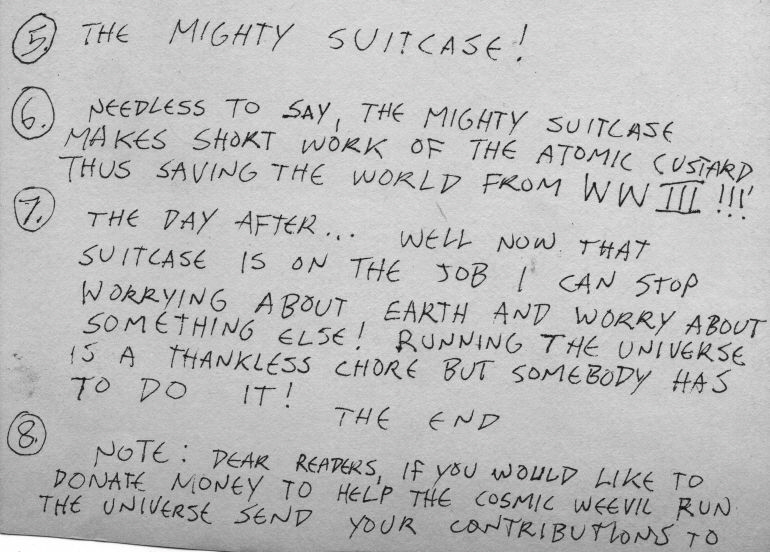 5. THE MIGHTY SUITCASE!
6. NEEDLESS TO SAY, THE MIGHTY SUITCASE
MAKES SHORT WORK OF THE ATOMIC CUSTARD
THUS SAVING THE WORLD FROM WW III!!!
7. THE DAY AFTER... WELL NOW THAT
SUITCASE IS ON THE JOB I CAN STOP
WORRYING ABOUT EARTH AND WORRY ABOUT
SOMETHING ELSE! RUNNING THE UNIVERSE
IS A THANKLESS CHORE BUT SOMEBODY HAS
TO DO IT!
THE END
8. NOTE: DEAR READERS, IF YOU WOULD LIKE TO
DONATE MONEY TO HELP THE COSMIC WEEVIL RUN
THE UNIVERSE SEND YOUR CONTRIBUTIONS TO